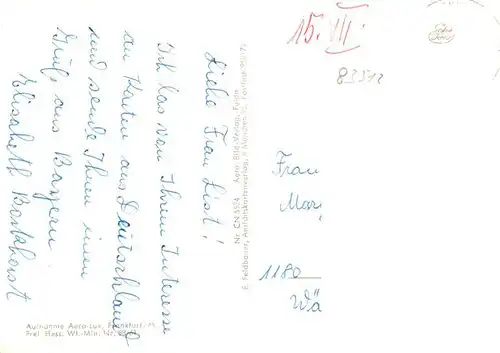 Liebe Frau List!
Ich las von Ihrem Interesse
an Karten aus Deutschland
und sende Ihnen einen
Gruß aus Bayern.
Elisabeth
15. VII.
83312
Frau
Mar
1180
Wä
Nr. CN 5574 Aero-Bild-Verlag, Fulda
E. Feldbauer, Ansichtskartenverlag, 8 München
Aufnahme Aero-Lux, Frankfurt/M
Frei Hess. Wi.-Min. Nr.